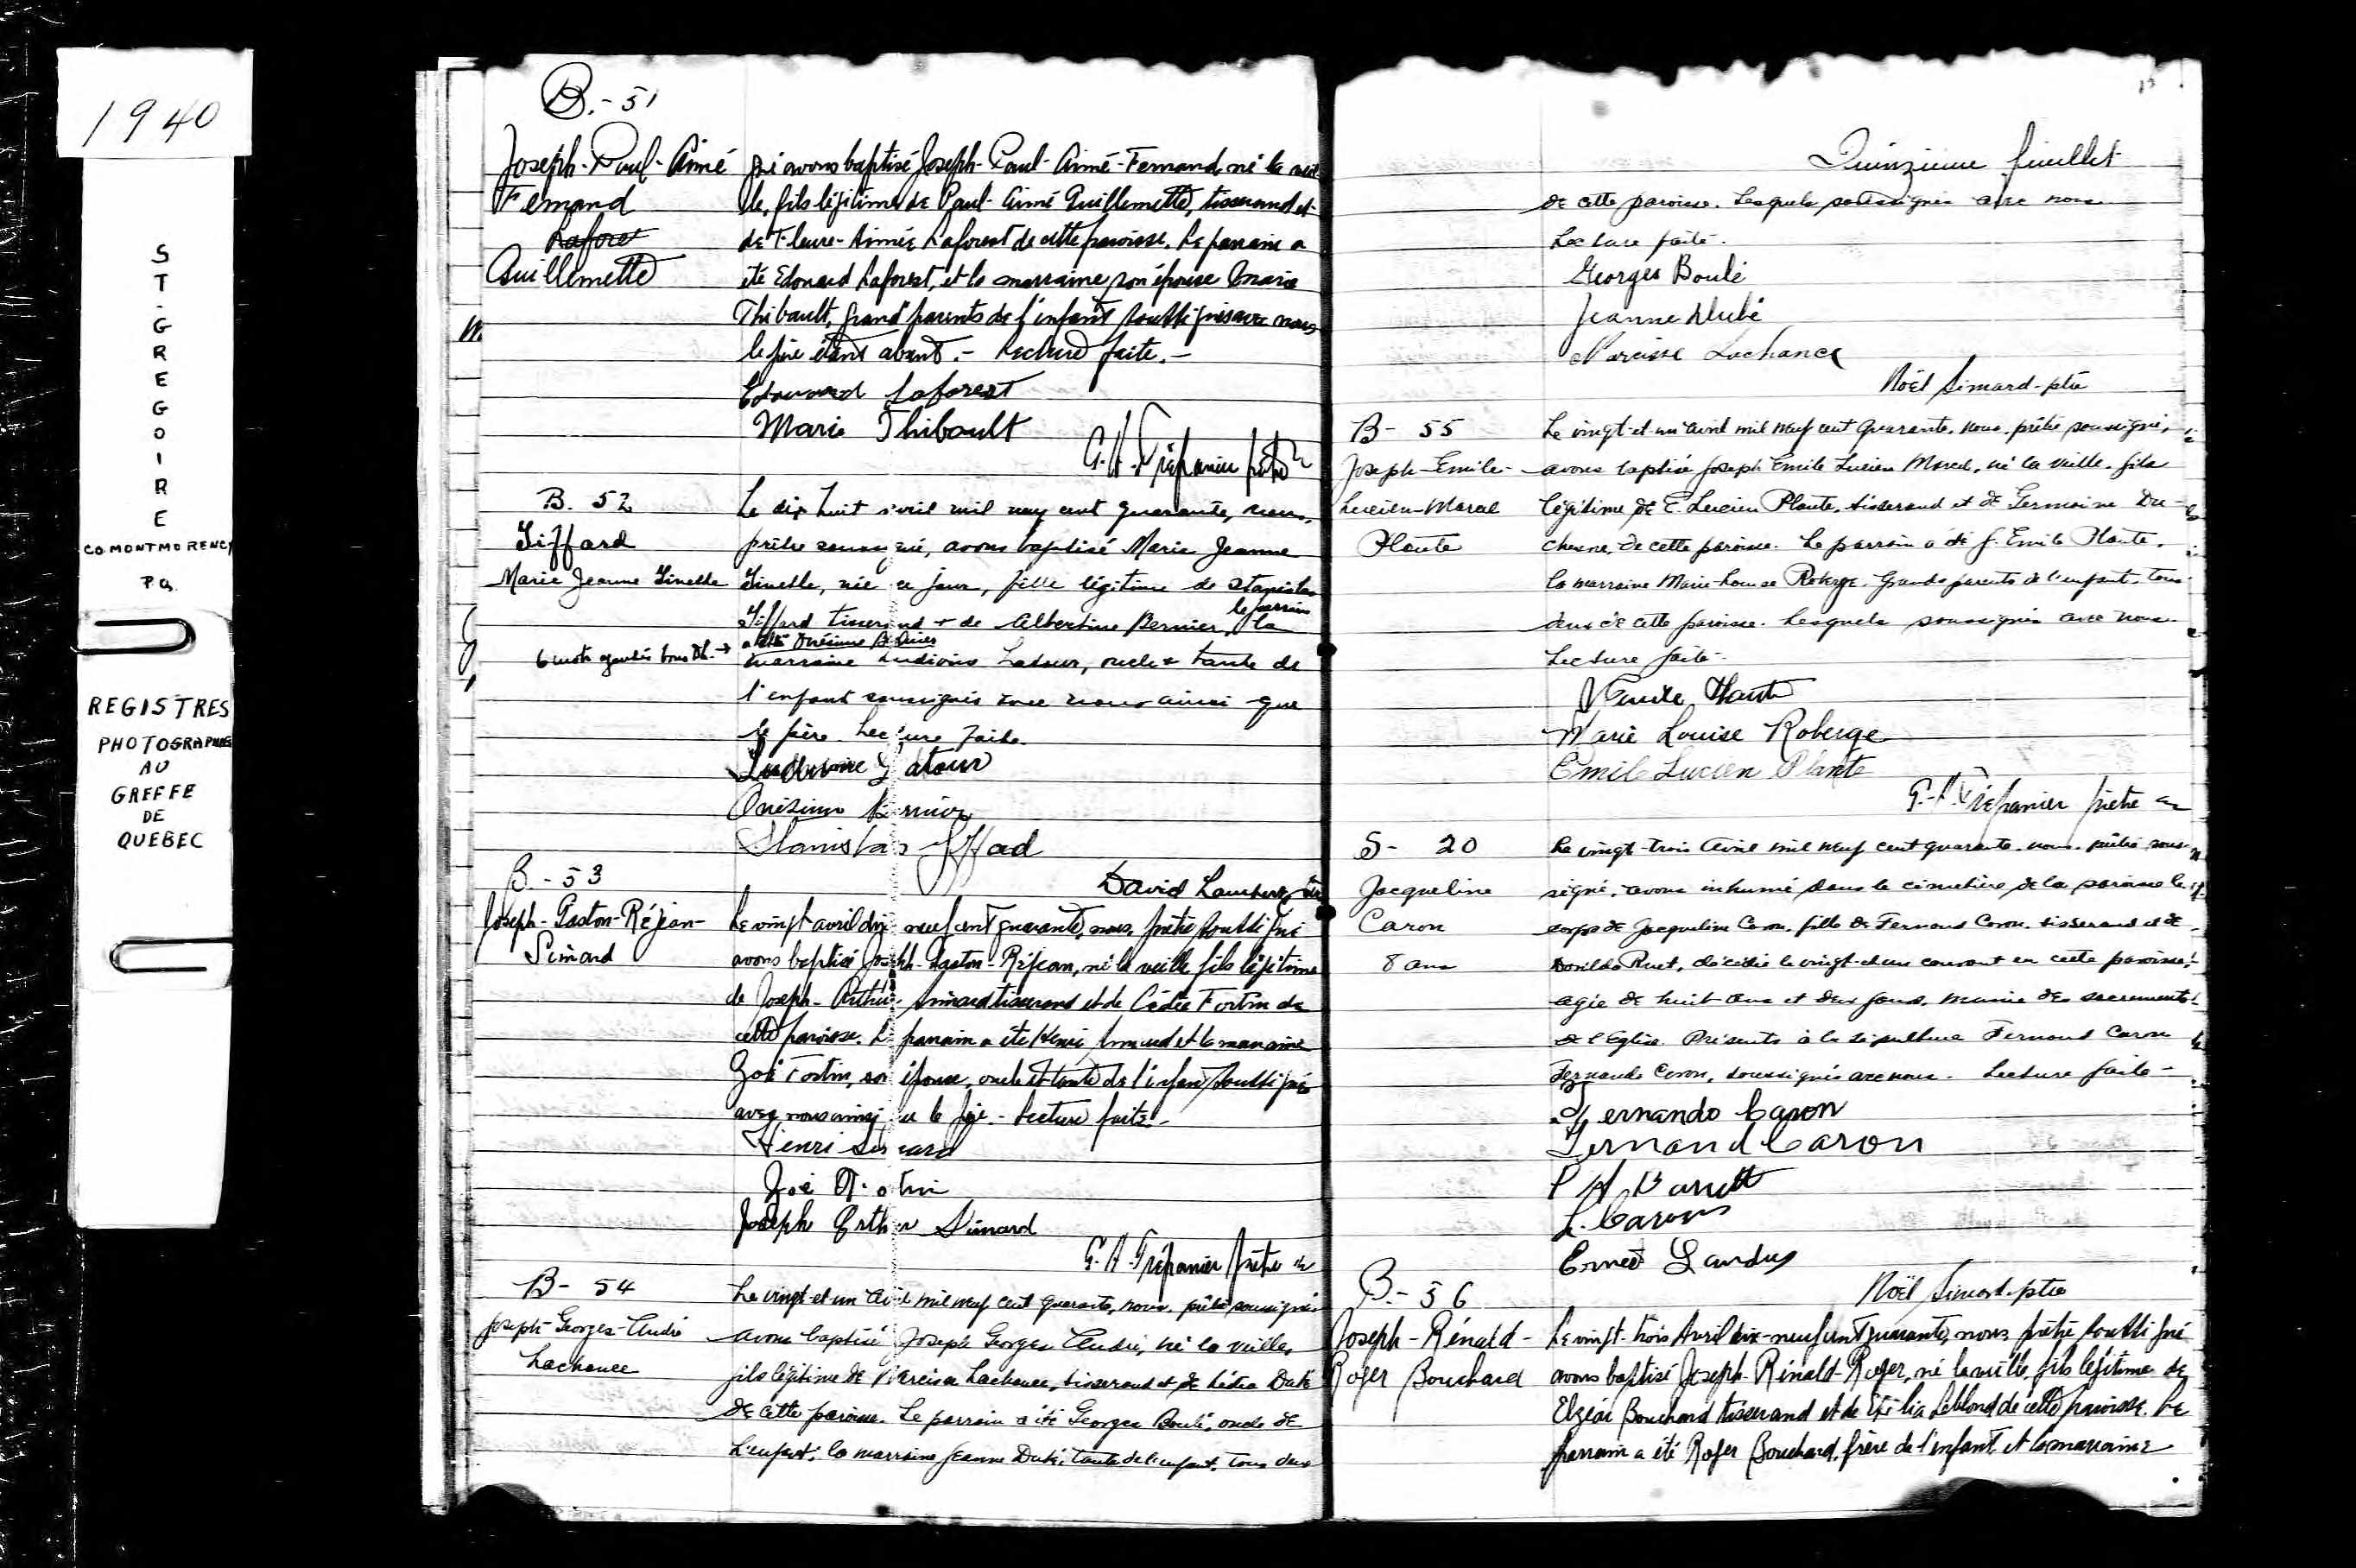 1940
ST-GREGOIRE
CO. MONTMORENCY
P.Q.
REGISTRES
PHOTOGRAPHIES
AU
GREFFE
DE
QUEBEC
B.-51
Joseph-Paul-Aimé
Fernand
Laforet
Guillemette
gné avons baptisé Joseph-Paul-Aimé-Fernand, né la veil
le, fils légitime de Paul-Aimé Guillemette, tisserand et
de Fleure-Aimée Laforest de cette paroisse. Le parrain a
été Edouard Laforest, et la marraine son épouse Marie
Thibault, grand'parents de l'enfant soussignés avec nous
le père étant absent.- Lecture faite.-
Edouard Laforest
Marie Thibault
G.H. Trépanier ptre
B. 52
Giffard
Marie Jeanne Ginette
6 mots ajoutés bons DL. →
Le dix huit avril mil neuf cent quarante, nous,
prêtre soussigné, avons baptisé Marie Jeanne
Ginette, née ce jour, fille légitime de Stanislas
le parrain
Giffard tisserand + de Albertine Bernier, la
a été Onésime Bernier
marraine Ludivine Latour, oncle + tante de
l'enfant soussignés avec nous ainsi que
le père. Lecture faite.
Ludivine Latour
Onésime Bernier
Stanislas Giffard
David Lambert, ptre
B.-53
Joseph-Gaston-Réjean-
Simard
Le vingt avril dix neuf cent quarante, nous, prêtre soussigné
avons baptisé Joseph-Gaston-Réjean, né la veille fils légitime
de Joseph-Arthur Simard tisserand et de Cédée Fortin de
cette paroisse. Le parrain a été Henri Simard et la marraine
Zoé Fortin, son épouse, oncle et tante de l'enfant soussignés
avec nous ainsi que le père.- Lecture faite.-
Henri Simard
Zoé Fortin
Joseph Arthur Simard
G.H. Trépanier prêtre
B- 54
Joseph-Georges-André
Lachance
Le vingt-et-un avril mil neuf cent quarante, nous, prêtre soussigné
avons baptisé Joseph Georges André, né la veille,
fils légitime de Narcisse Lachance, tisserand et de Lédia Dubé
de cette paroisse. Le parrain a été Georges Boulé, oncle de
l'enfant; la marraine Jeanne Dubé, tante de l'enfant. Tous deux
Quinzième feuillet
de cette paroisse. Lesquels soussignés avec nous
Lecture faite.
Georges Boulé
Jeanne Dubé
Narcisse Lachance
Noël Simard-ptre
B- 55
Joseph-Emile-
Lucien-Marcel
Plante
Le vingt-et-un avril mil neuf cent quarante, nous, prêtre soussigné,
avons baptisé Joseph Emile Lucien Marcel, né la veille, fils
légitime de E. Lucien Plante, tisserand et de Germaine Du-
chesne, de cette paroisse. Le parrain a été J. Emile Plante,
la marraine Marie-Louise Roberge. Grands parents de l'enfant, tous
deux de cette paroisse. Lesquels soussignés avec nous
Lecture faite.
J Emile Plante
Marie Louise Roberge
Emile Lucien Plante
G.-H. Trépanier prêtre
S- 20
Jacqueline
Caron
8 ans
Le vingt-trois avril mil neuf cent quarante, nous, prêtre sous-
signé, avons inhumé dans le cimetière de la paroisse le
corps de Jacqueline Caron, fille de Fernand Caron, tisserand et de
Dorilda Ruet, décédée le vingt-et-un courant en cette paroisse,
agée de huit ans et deux jours, munie des sacrements
de l'Eglise. Présents à la sépulture Fernand Caron
Fernando Caron, soussignés avec nous. Lecture faite-
Fernando Caron
Fernand Caron
L. Caron
Ernest Landry
Noël Simard-ptre
B.- 56
Joseph-Rénald-
Roger Bouchard
Le vingt-trois Avril dix-neuf cent quarante, nous, prêtre soussigné
avons baptisé Joseph-Rénald-Roger, né la veille, fils légitime de
Elzéar Bouchard tisserand et de Leblond de cette paroisse. Le
parrain a été Roger Bouchard, frère de l'enfant, et la marraine